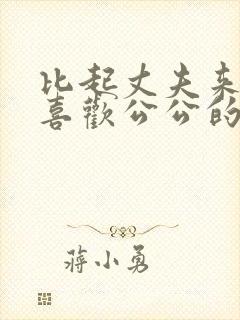 比起丈夫来
喜歡公公的
蒋小勇